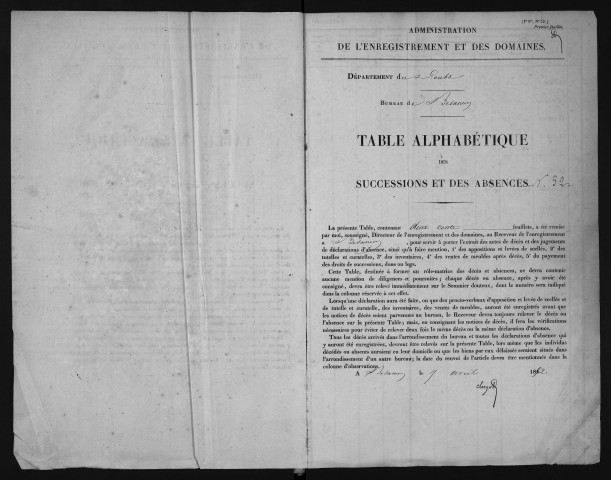 Premier feuillet
ADMINISTRATION
DE L'ENREGISTREMENT ET DES DOMAINES.
DÉPARTEMENT du Doubs
BUREAU de Besançon
TABLE ALPHABÉTIQUE
DES
SUCCESSIONS ET DES ABSENCES. N° 32
La présente Table, contenant deux cents feuillets, a été remise
par moi, soussigné, Directeur de l'enregistrement et des domaines, au Receveur de l'enregistrement
à Besançon, pour servir à porter l'extrait des actes de décès et des jugements
de déclarations d'absence, ainsi qu'à faire mention, 1° des appositions et levées de scellés, 2° des
tutelles et curatelles, 3° des inventaires, 4° des ventes de meubles après décès, 5° du payement
des droits de successions, dans ou legs.
Cette Table, destinée à former un rôle-matrice des décès et absences, ne devra contenir
aucune mention de diligences et poursuites; chaque décès ou absence, après y avoir été
consigné, devra être relevé immédiatement sur le Sommier douteux, dont le numéro sera indiqué
dans la colonne réservée à cet effet.
Lorsqu'une déclaration aura été faite, ou que des procès-verbaux d'apposition et levée de scellés et
de tutelle et curatelle, des inventaires, des ventes de meubles, auront été enregistrés avant que
les notices de décès soient parvenues au bureau, le Receveur devra toujours relever le décès ou
l'absence sur la présente Table; mais, en consignant les notices de décès, il fera les vérifications
nécessaires pour éviter de relever deux fois le même décès ou la même déclaration d'absence.
Tous les décès arrivés dans l'arrondissement du bureau et toutes les déclarations d'absence qui
y auront été enregistrées, devront être relevés sur la présente Table, lors même que les individus
décédés ou absents auraient eu leur domicile ou que les biens par eux délaissés seraient situés dans
l'arrondissement d'un autre bureau; la date du renvoi de l'article devra être mentionnée dans la
colonne d'observations.
A Besançon le 9 avril 1862.